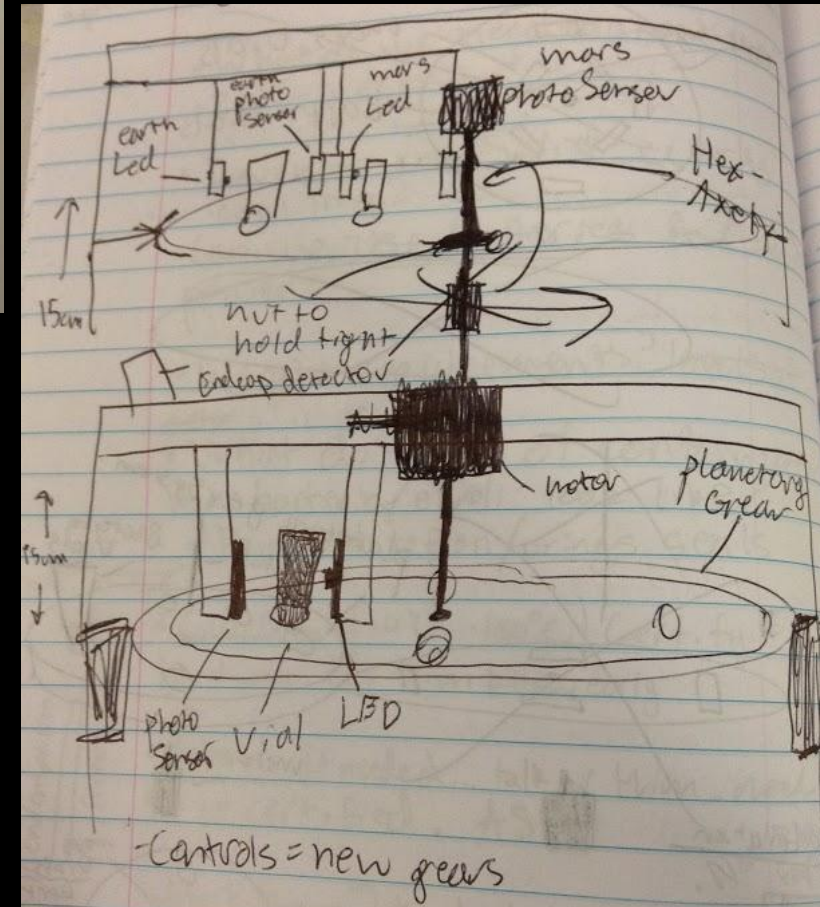 mars
photo Senser
earth
photo
senser
mars
Led
earth
Led
Hex-
15cm
nut to
hold tight
Endcap detector
motor
planetary
Gear
15cm
photo
Senser
Vial
LED
-Controls = new gears